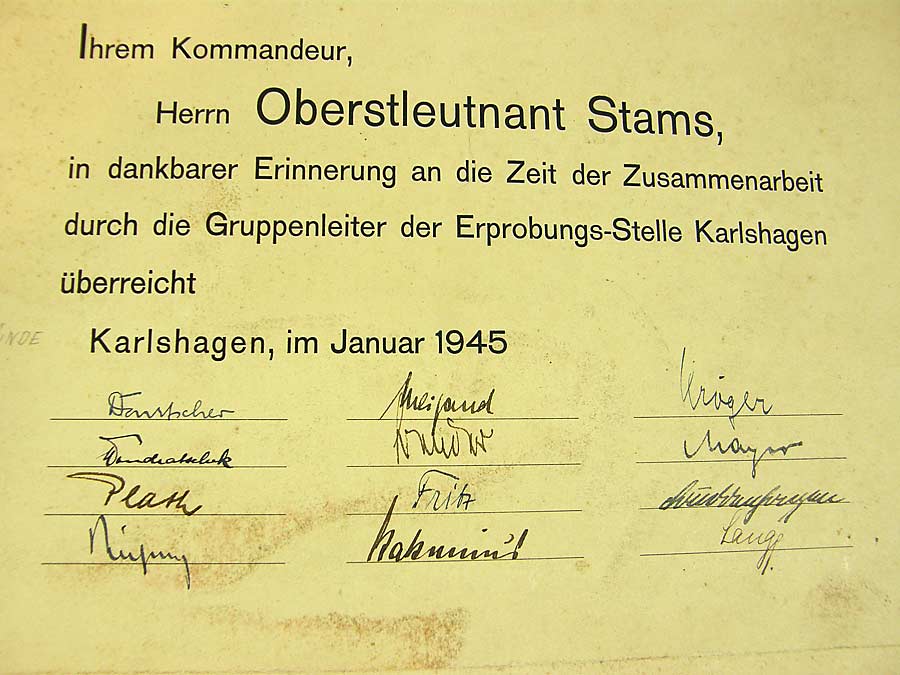 Ihrem Kommandeur,
Herrn Oberstleutnant Stams,
in dankbarer Erinnerung an die Zeit der Zusammenarbeit
durch die Gruppenleiter der Erprobungs-Stelle Karlshagen
überreicht
Karlshagen, im Januar 1945
Kröger
Mayer
Plath Fritz
Lang